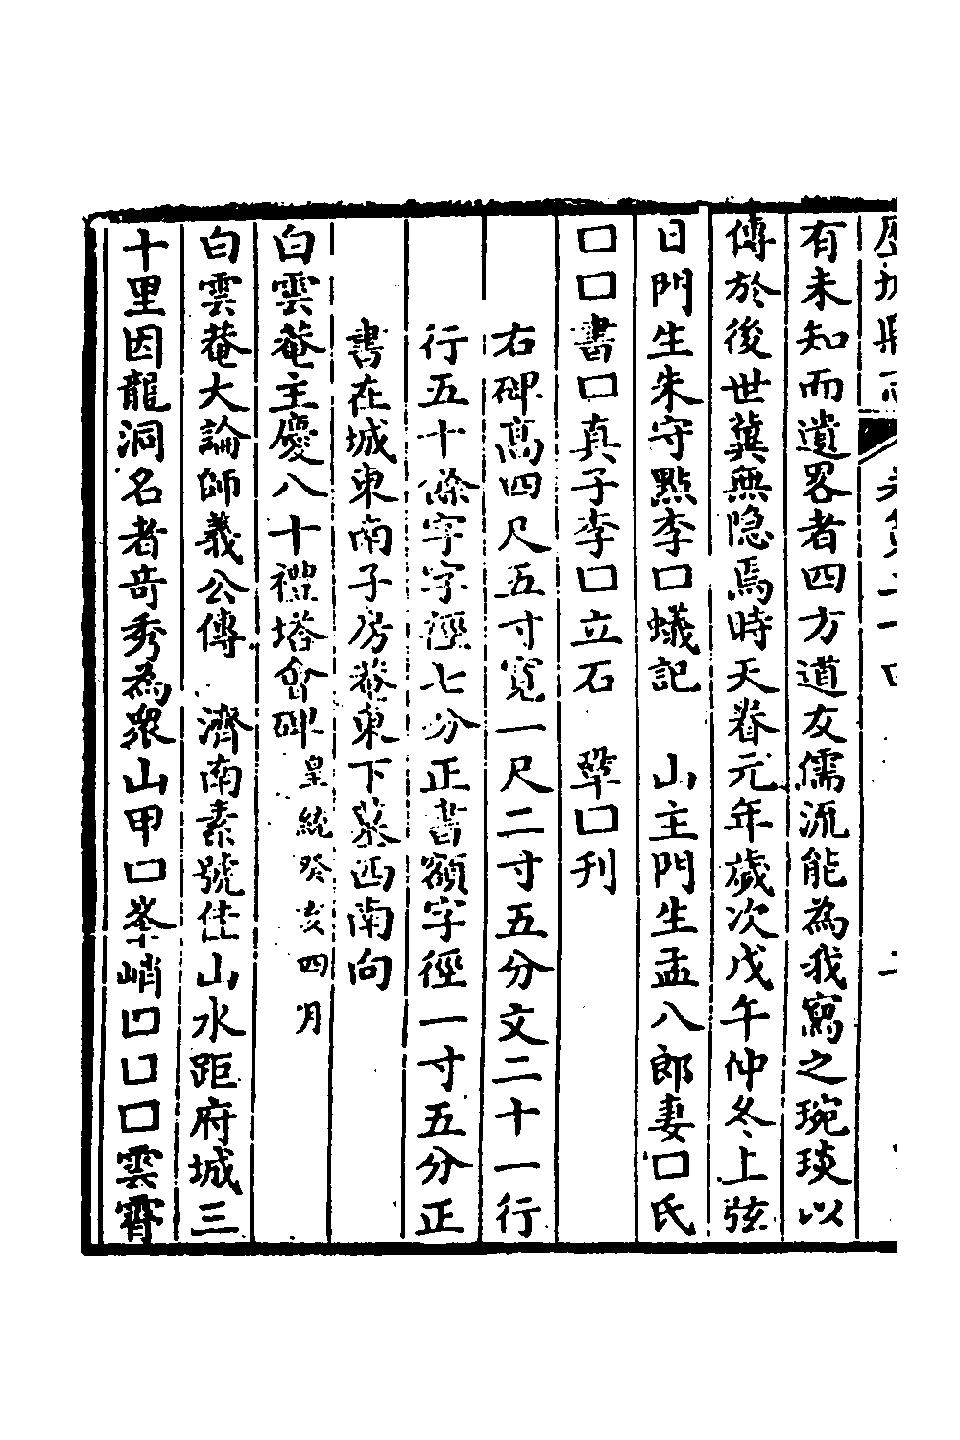 有未知而遺畧者四方道友儒流能為我寫之琬琰以
傳於後世冀無隐焉時天眷元年歲次戊午仲冬上弦
日門生朱守㸃李口蟻記　山主門生孟八郎妻口氏
口口書口真子李口立石　鞏口刋
右碑髙四尺五寸寛一尺二寸五分文二十一行
行五十餘字字徑七分正書額字徑一寸五分正
書在城東南子房菴東下㙮西南向
白雲菴主慶八十禪塔會碑皇統癸亥四月
白雲菴大論師義公傳　濟南素號佳山水距府城三
十里因龍洞名者竒秀為衆山甲口峯峭口口口雲霄